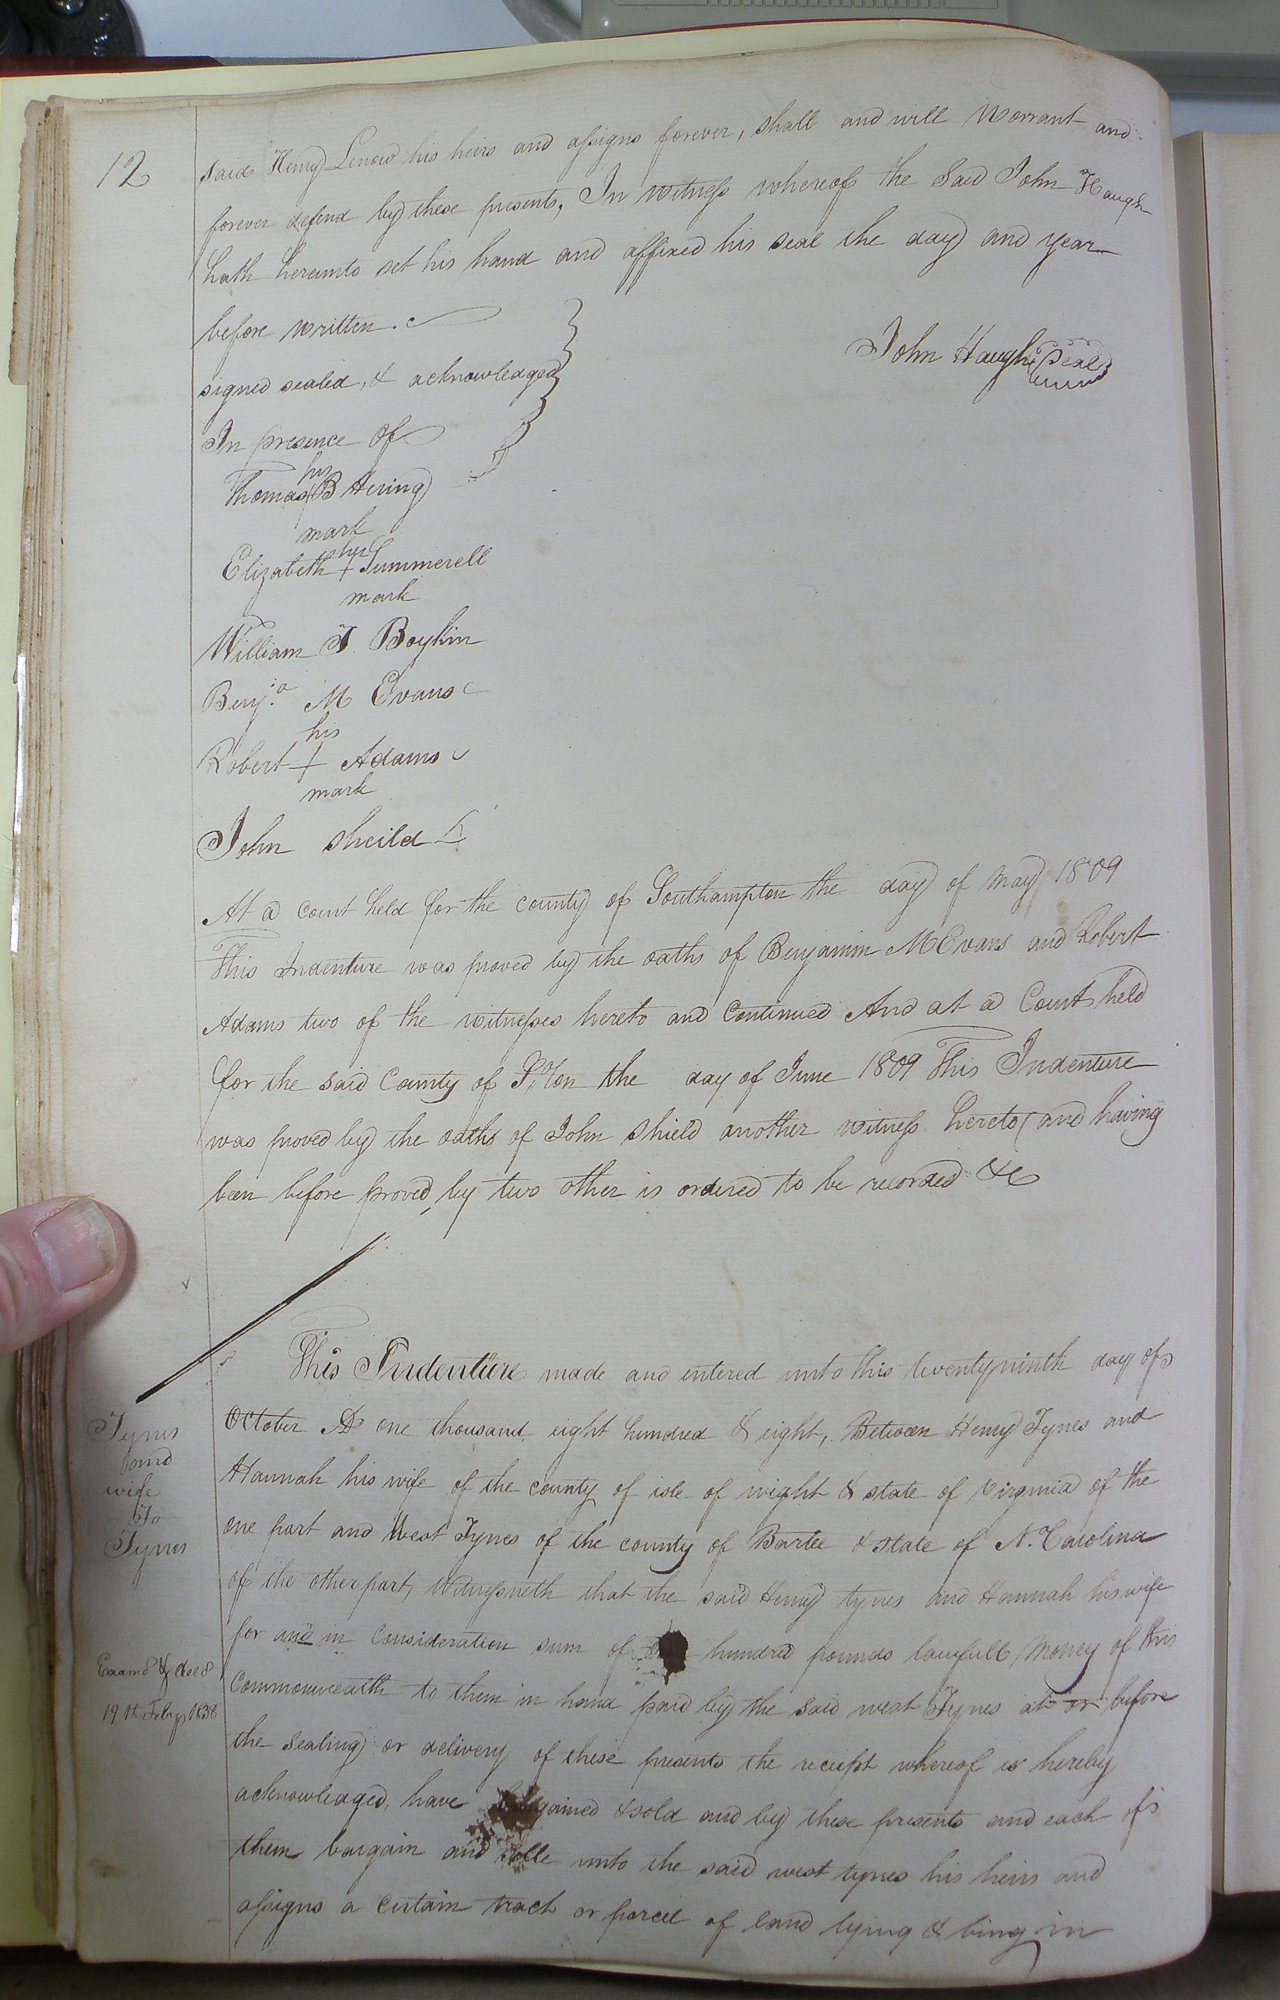 12
said Henry Lenow his heirs and assigns forever, shall and will Warrant and
forever defend by these presents, In witness whereof the Said John Haugh
hath hereunto set his hand and affixed his seal the day and year
before written.
John Haugh (Seal)
signed sealed, & acknowledged
In presence of
his
Thomas B Hering
mark
her
Elizabeth + Summerell
mark
William J Boykin
Benja. M Evans
his
Robert + Adams
mark
John Sheild
At a court held for the county of Southampton the day of May 1809
This Indenture was proved by the oaths of Benjamin M Evans and Robert
Adams two of the witnesses hereto and continued And at a Court held
for the said County of the day of June 1809 This Indenture
was proved by the oaths of John Shield another witness hereto and having
been before proved by two other is ordered to be recorded &c
This Indenture made and entered unto this twentyninth day of
October AD one thousand eight hundred & eight, Between Henry Tynes and
Tynes
and
wife
To
Tynes
Hannah his wife of the county of isle of wight & state of virginia of the
one part and West Tynes of the county of Bartee & state of N. Carolina
of the other part, Witnesseth that the said Henry tynes and Hannah his wife
for and in consideration sum of hundred pounds lawfull Money of this
Examd & deld
19th Feby 1838
Commonwealth to them in hand paid by the said west Tynes at or before
the sealing or delivery of these presents the receipt whereof is hereby
acknowledged, have bargained & sold and by these presents and each of
them bargain and selle unto the said west tynes his heirs and
assigns a certain track or parcel of land lying & bing in